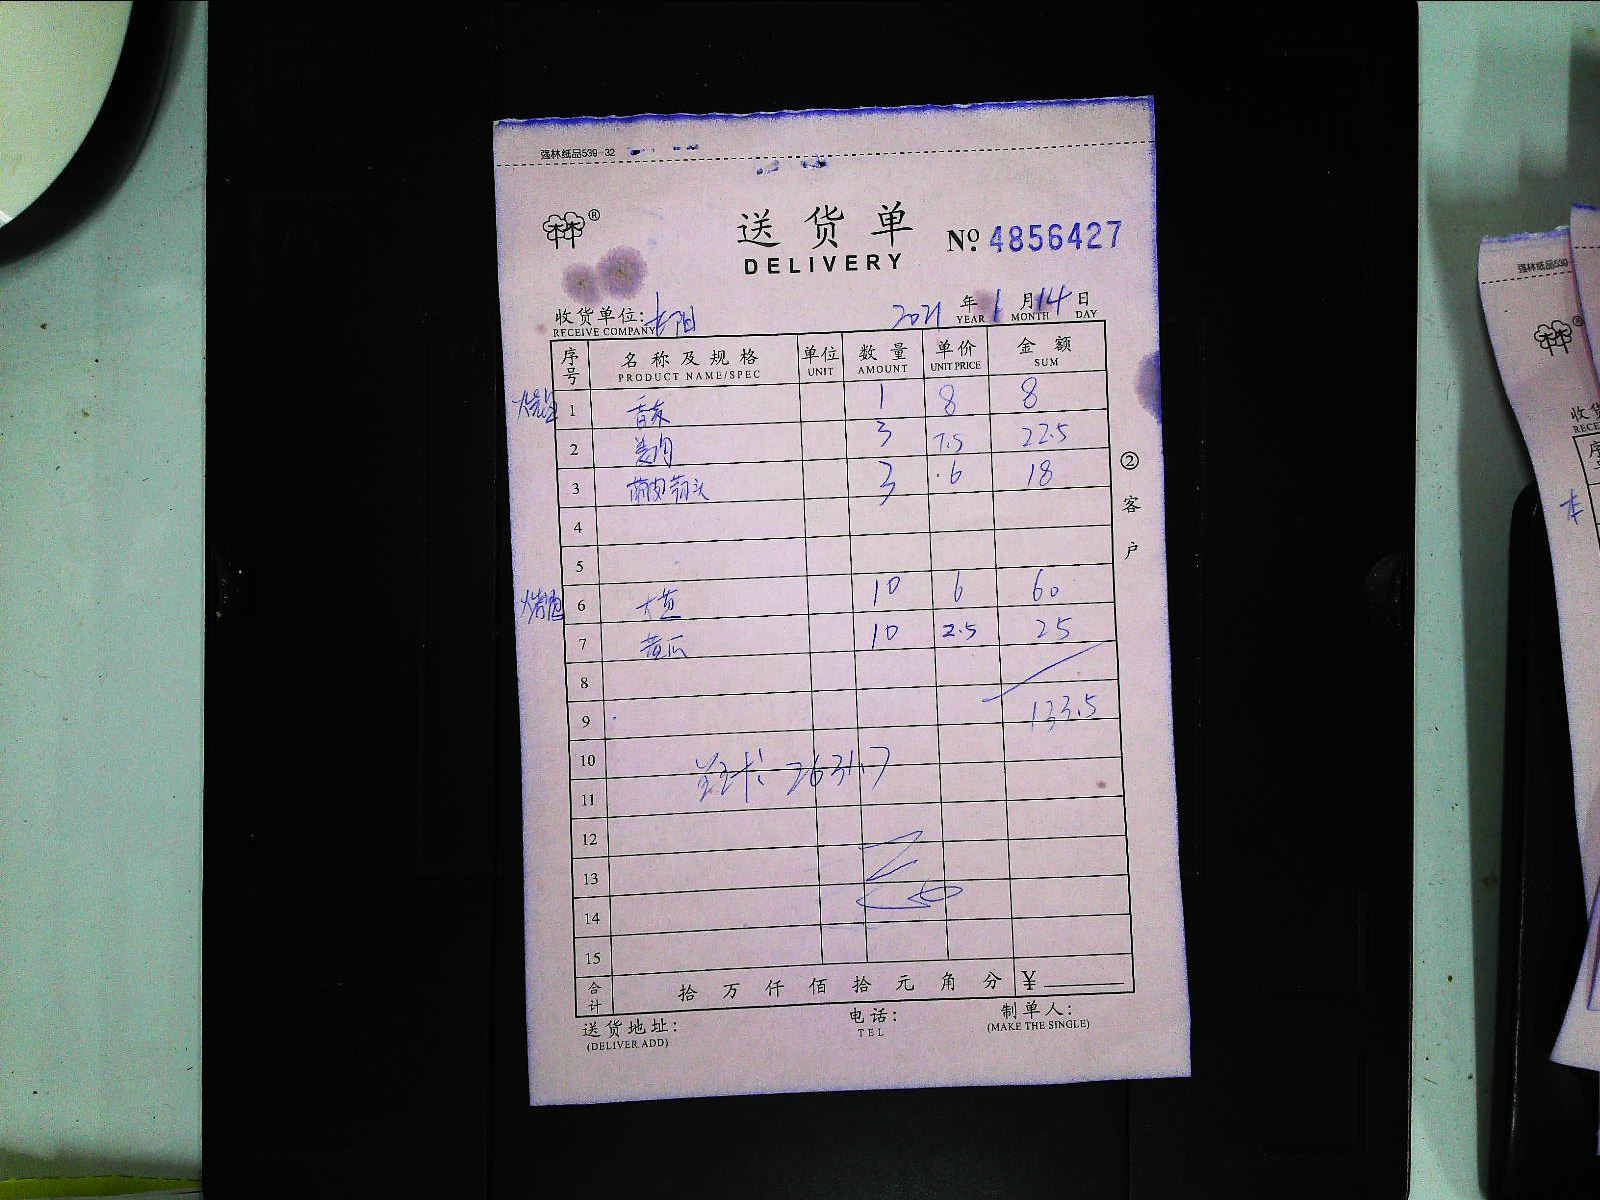 强林纸品539-32
送货单
DELIVERY
® No. 4856427
收货单位: 阳 2021年1月14日
RECEIVE COMPANY YEAR MONTH DAY
序号 名称及规格 单位 数量 单价 金额
PRODUCT NAME/SPEC UNIT AMOUNT UNIT PRICE SUM
1 1 8 8
2 姜肉 3 7.5 22.5
3 3 6 18
4
5
6 大 10 6 60
7 黄瓜 10 2.5 25
8
9 133.5
10 2631.7
11
12
13
14
15
合计 拾 万 仟 佰 拾 元 角 分 ¥
送货地址: 电话: 制单人:
(DELIVER ADD) TEL (MAKE THE SINGLE)
②客户
强林纸品539
®
收货
RECE
序